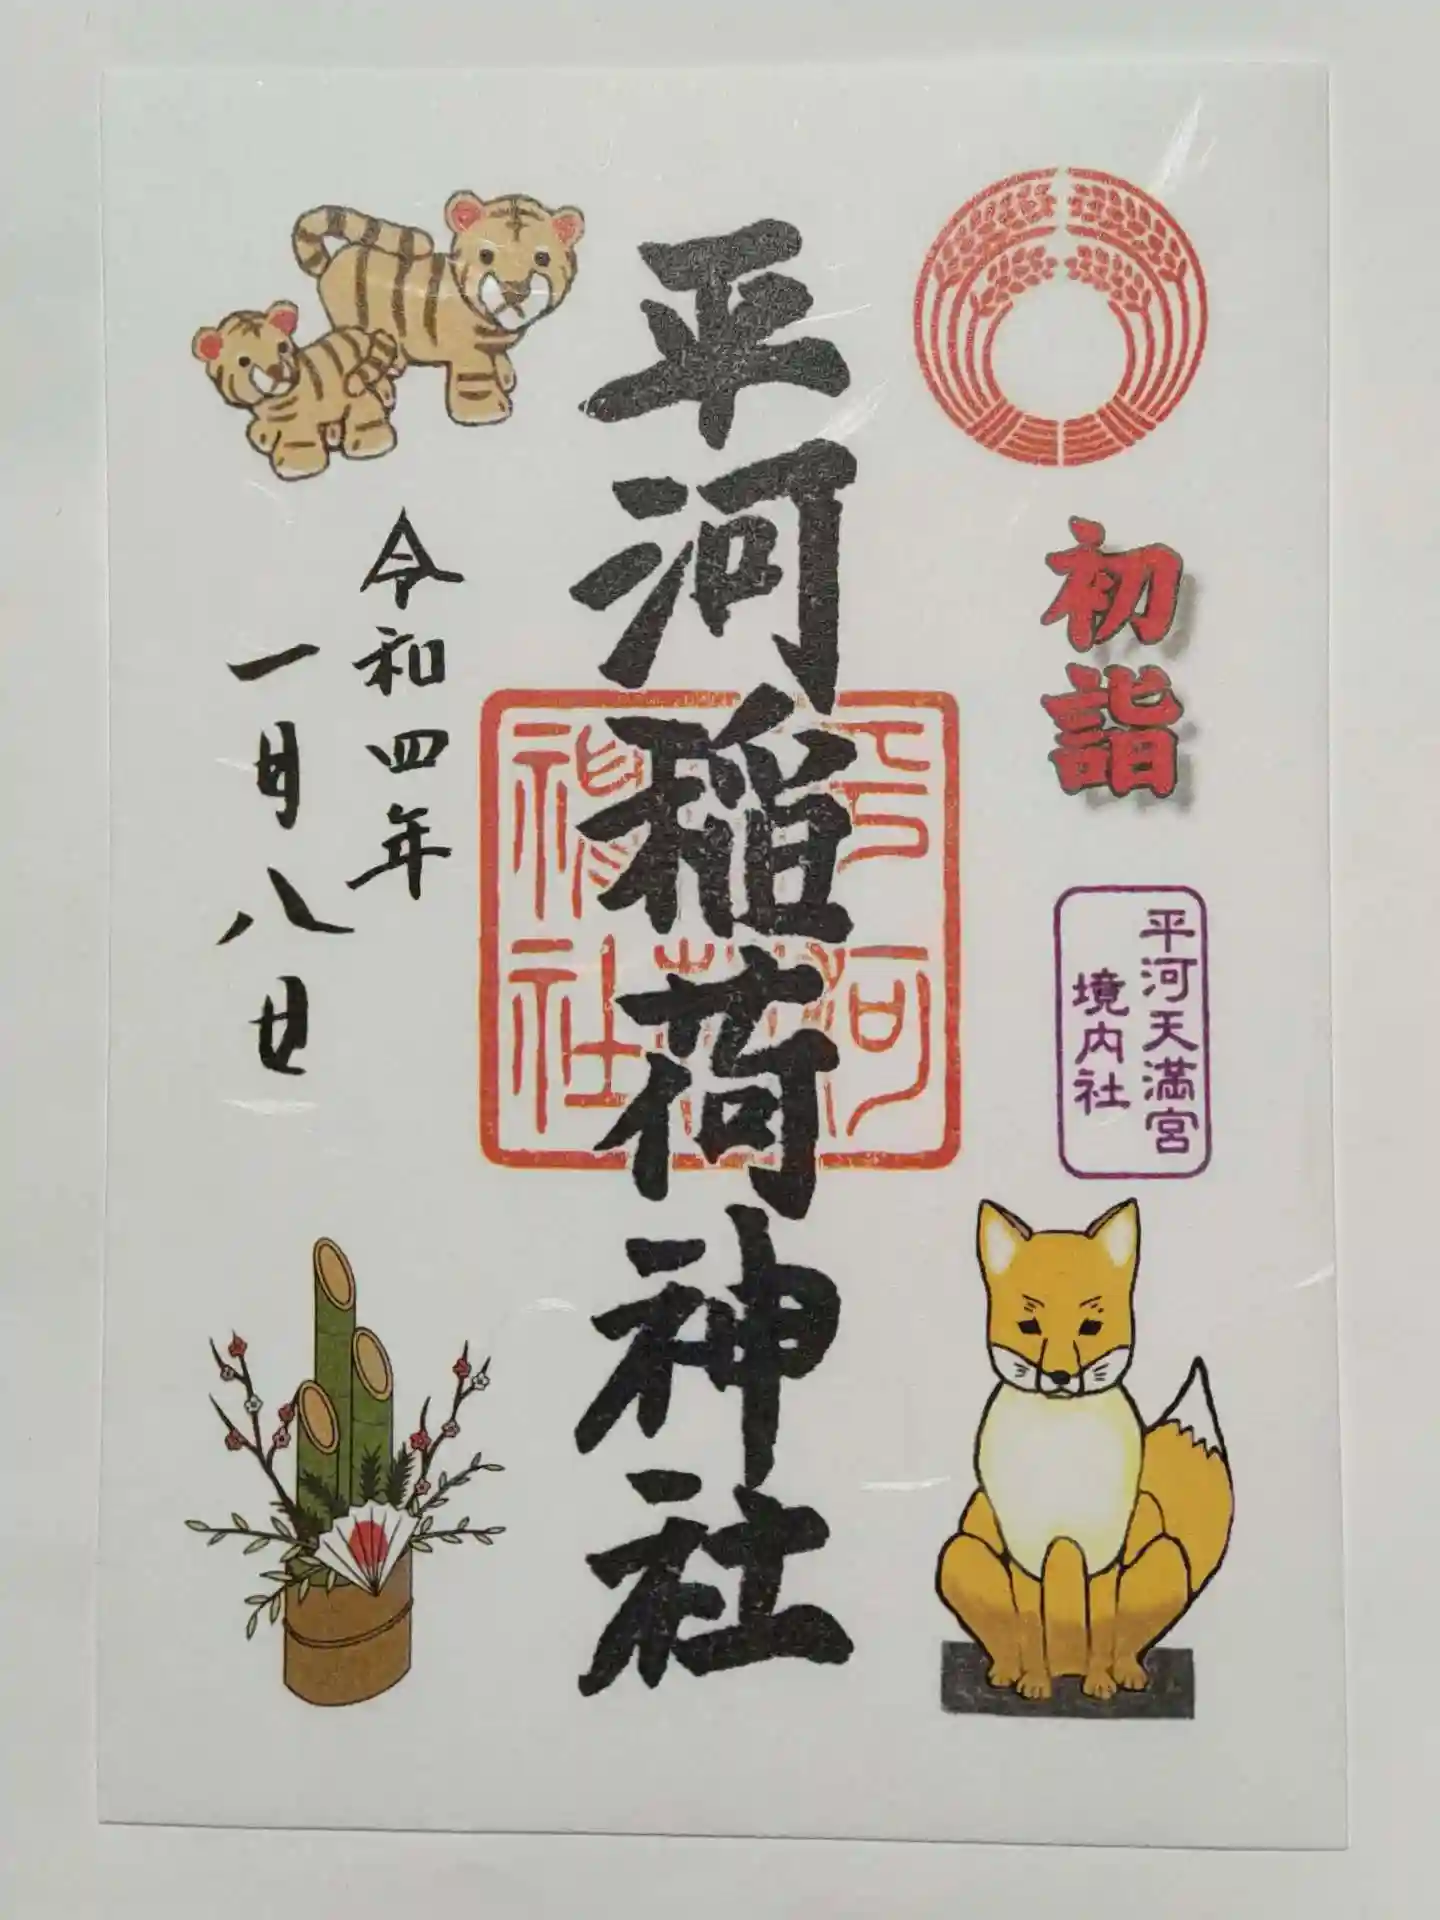 初詣
平河天満宮
境内社
平河稲荷神社
平河
稲荷
神社
令和四年
一月八日